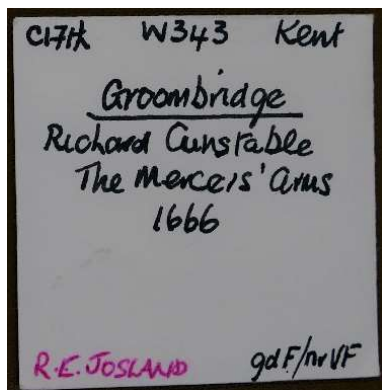 C17th W343 Kent
Groombridge
Richard Cunstable
The Mercers' Arms
1666
R.E. JOSLAND gdF/nrVF